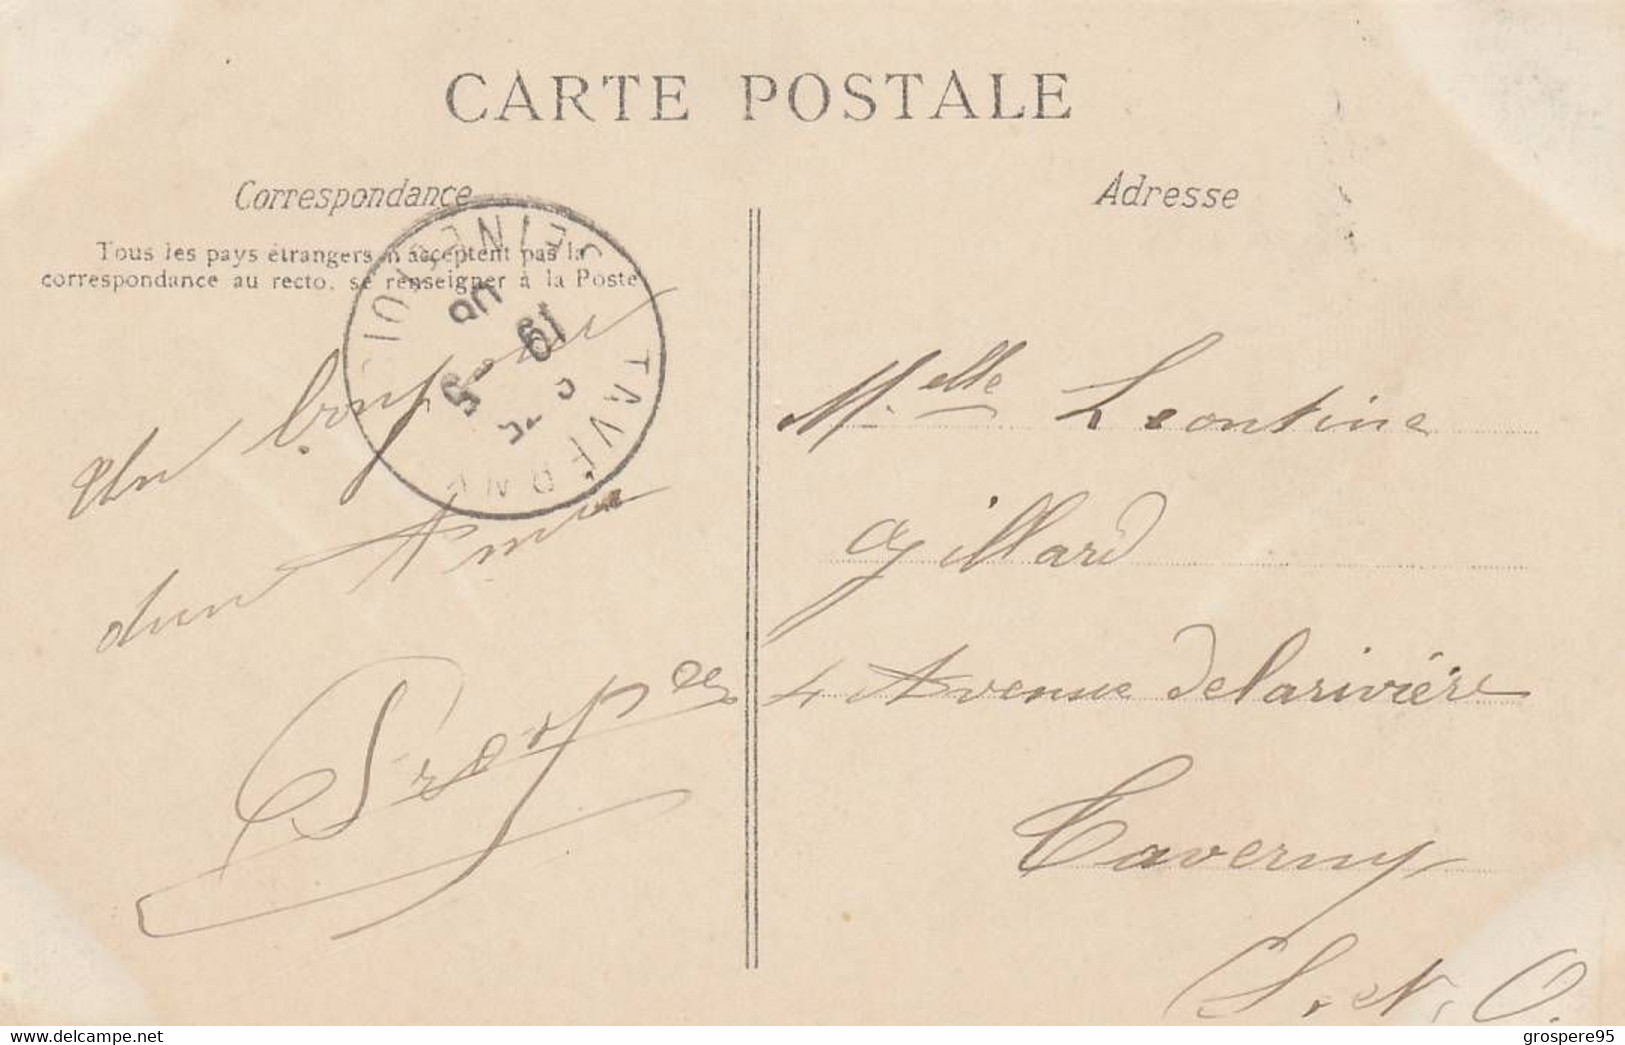 CARTE POSTALE
Correspondance
Tous les pays étrangers n'acceptent pas la
correspondance au recto, se renseigner à la Poste
Un bonjour
dun Amie
Adresse
Melle Leontine
Gillard
4 Avenue delarivière
Taverny
S. et. O.
SEINE ET OISE
TAVERNY
19
5
08
grospere95